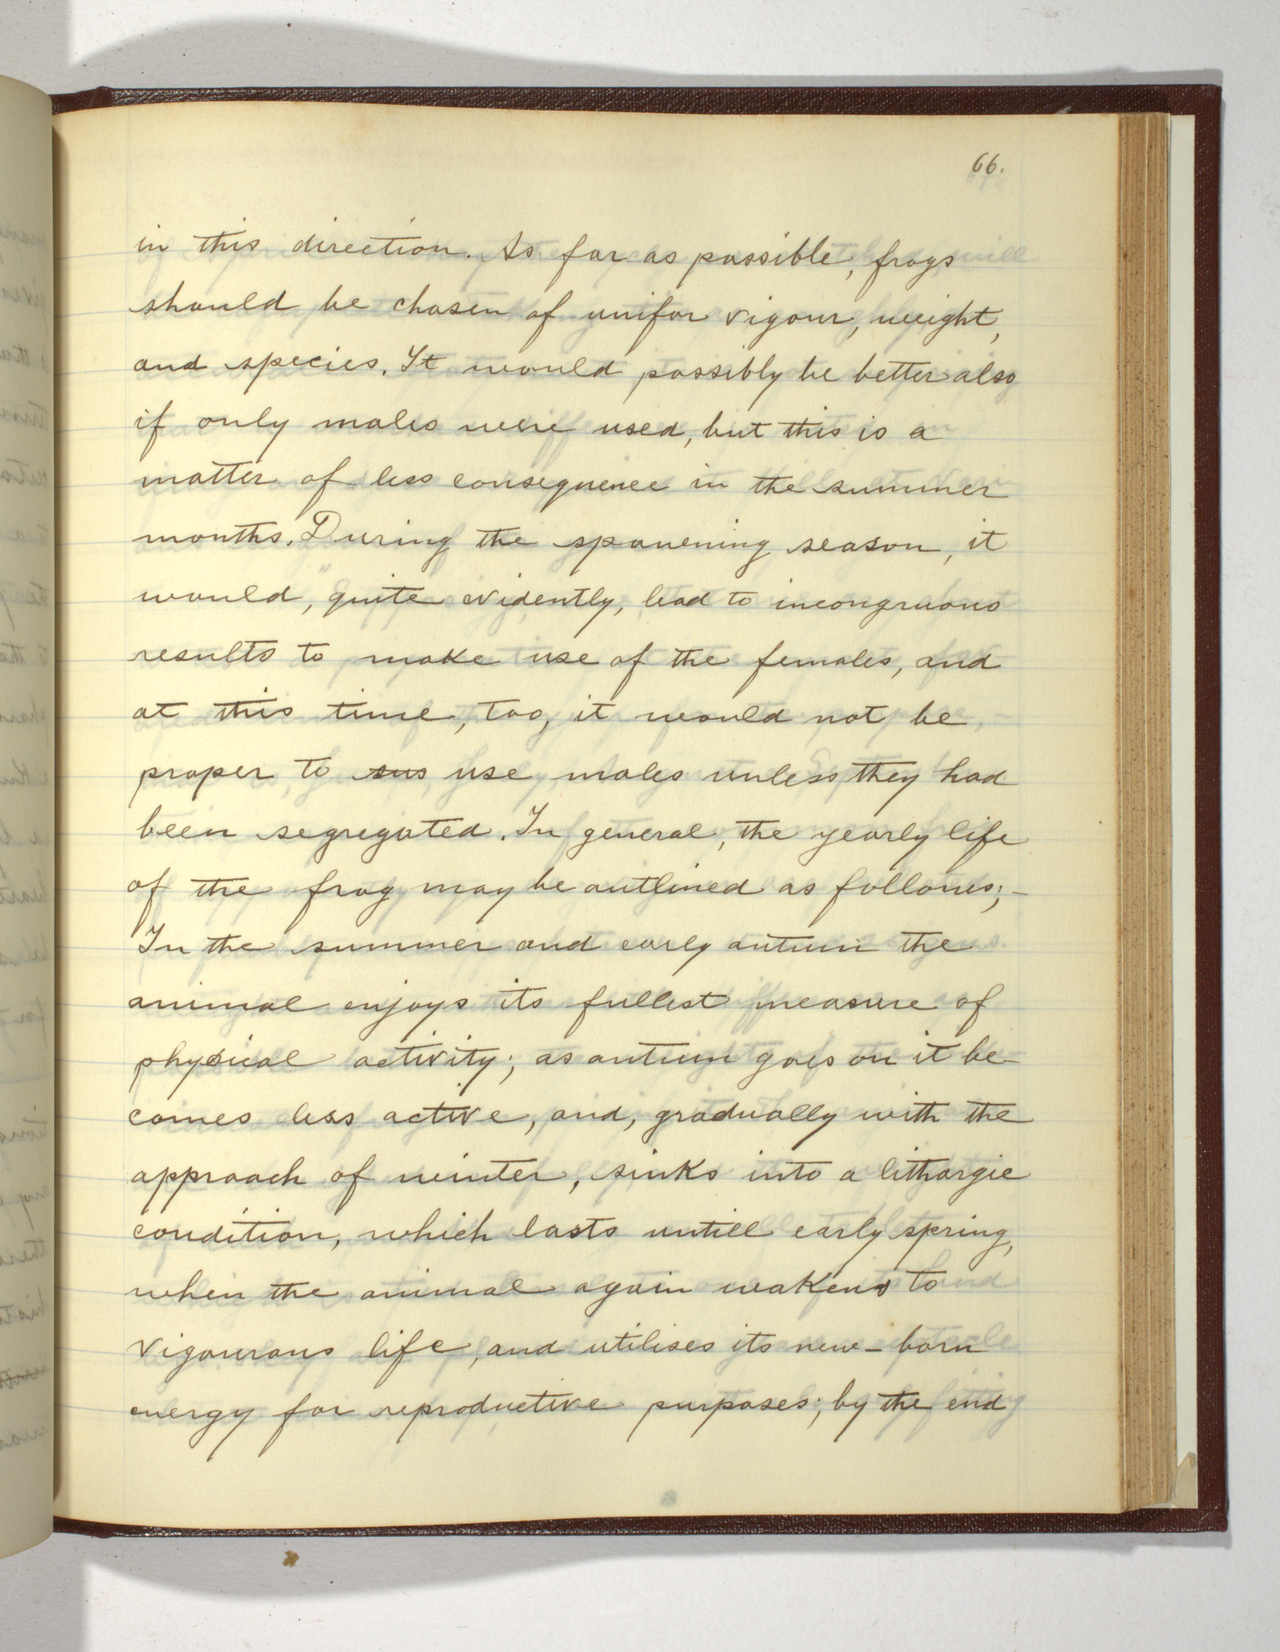 66.
in this direction. As far as possible, frogs
should be chosen of unifor vigour, weight,
and species. It would possibly be better also
if only males were used, but this is a
matter of less consequence in the summer
months. During the spawening season, it
would, quite evidently, lead to incongruous
results to make use of the females, and
at this time, too, it would not be
proper to sus use males unless they had
been segregated. In general, the yearly life
of the frog may be outlined as follows;-
In the summer and early autum the
animal enjoys its fullest measure of
physical activity; as autum goes on it be-
comes less active, and, gradually with the
approach of winter, sinks into a lithargic
condition, which lasts untill early spring,
when the animal again wakens to
vigourous life, and utilises its new-born
energy for reproductive purposes; by the end